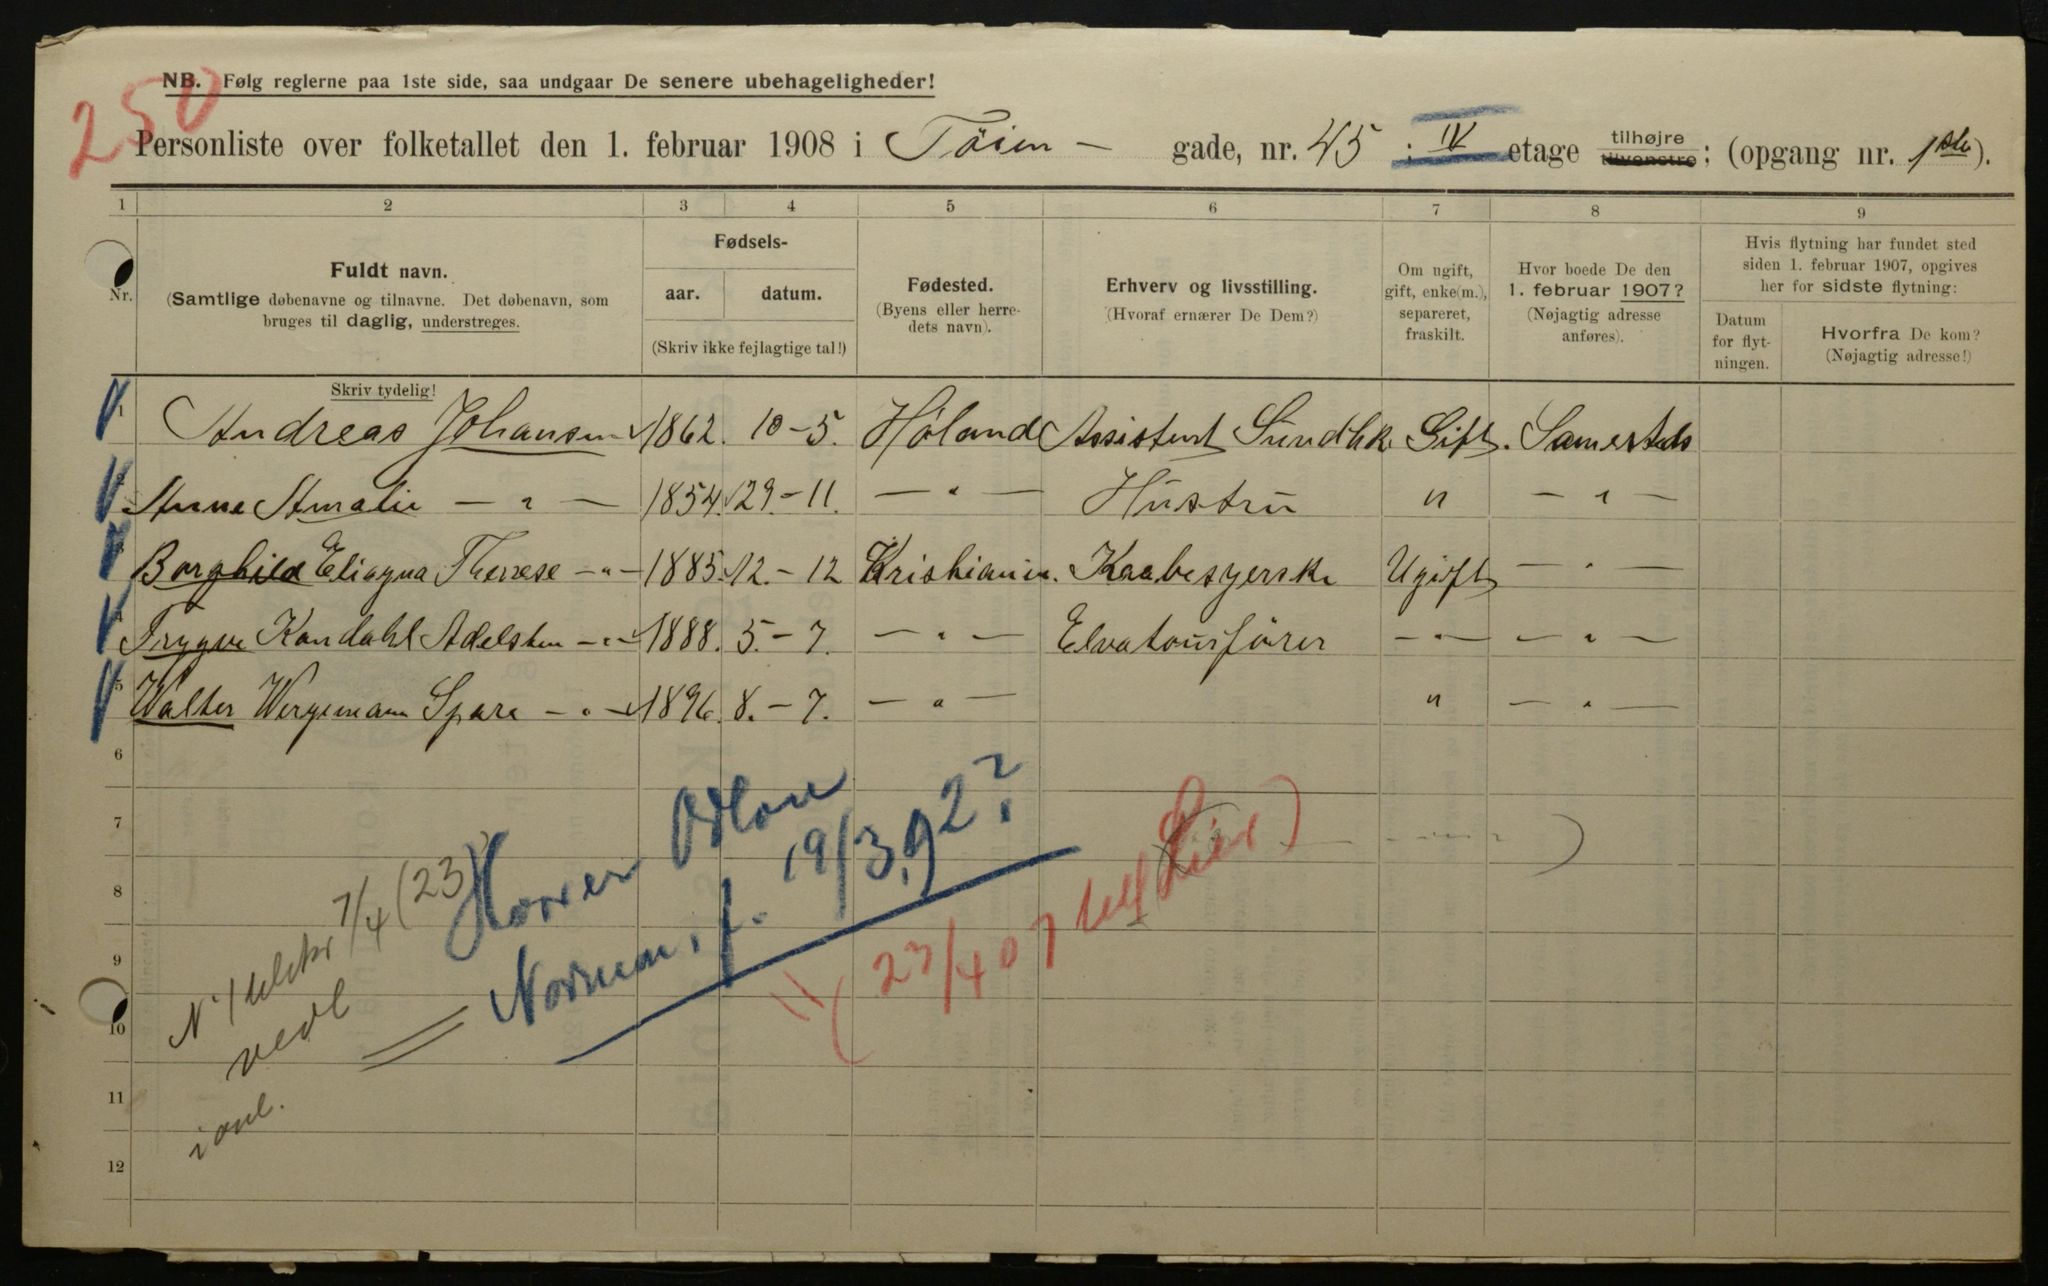 250
NB. Følg reglerne paa 1ste side, saa undgaar De senere ubehageligheder!
Personliste over folketallet den 1. februar 1908 i Töien - gade, nr. 45 : IV etage tilhøjre tilvenstre; (opgang nr. 1ste).
1 2 3 4 5 6 7 8 9
Nr.
Fuldt navn.
(Samtlige døbenavne og tilnavne. Det døbenavn, som
bruges til daglig, understreges.
Skriv tydelig!
Fødsels-
aar. datum.
(Skriv ikke fejlagtige tal!)
Fødested.
(Byens eller herre-
dets navn).
Erhverv og livsstilling.
(Hvoraf ernærer De Dem?)
Om ugift,
gift, enke(m.),
separeret,
fraskilt.
Hvor boede De den
1. februar 1907?
(Nøjagtig adresse
anføres).
Hvis flytning har fundet sted
siden 1. februar 1907, opgives
her for sidste flytning:
Datum
for flyt-
ningen.
Hvorfra De kom?
(Nøjagtig adresse!)
1 Andreas Johansen 1862. 10-5. Höland Assistent Sundhk. Gift. Samesteds
2 Anne Amalie — " — 1854. 29.-11. — " — Hustru " — " —
3 Borghild Therese — " — 1885. 12.-12 Kristiania. Kaabesyerske Ugift — " —
4 Trygve Kandahl Adelsten — " — 1888. 5.-7. — " — Elvatourförer — " — — " —
5 Walter Wergemann Spare — " — 1896. 8.-7. — " — " — " —
6
7
8
9
10
11
12
Norman, f. 19/3.92?
7/4 (23)
vedl
(23/4 07 til Lier)